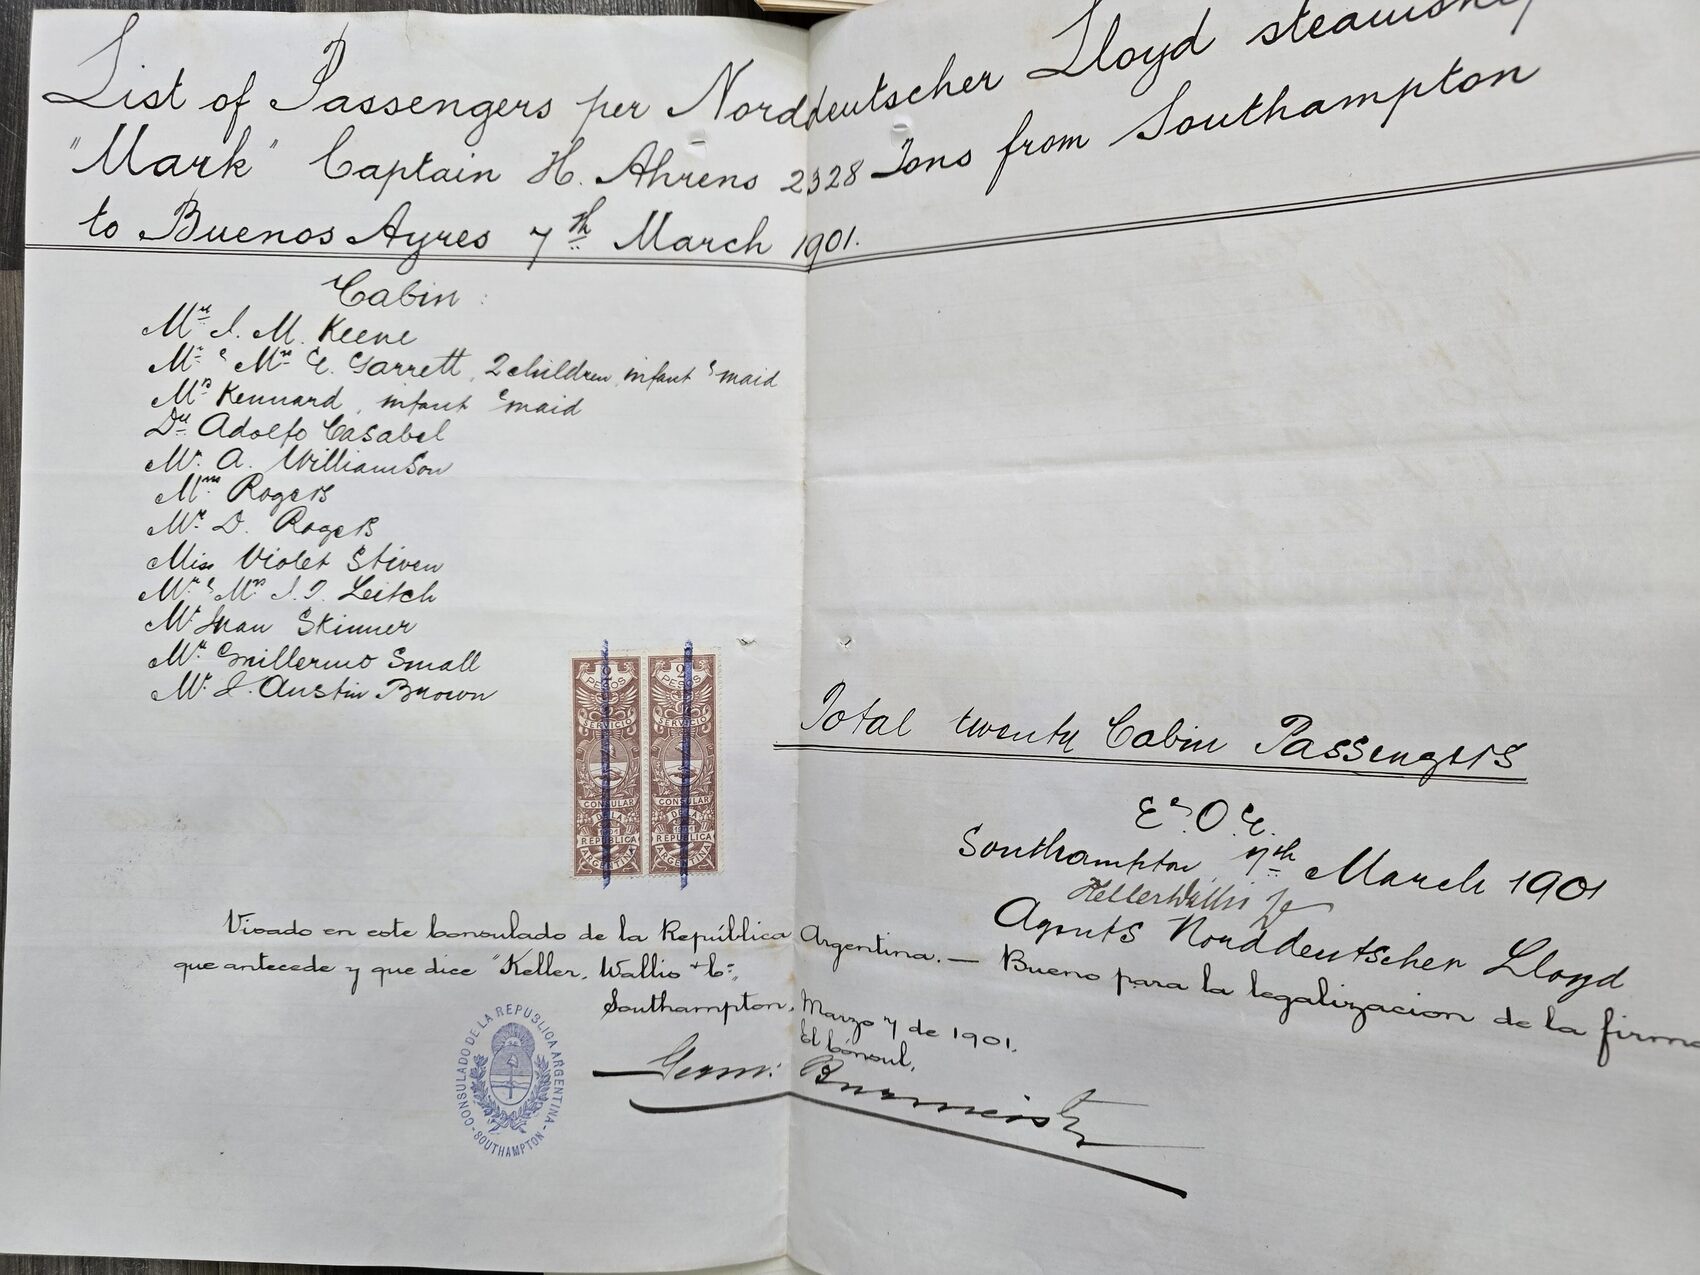 List of Passengers per Norddeutscher Lloyd steamship
"Mark" Captain H. Ahrens 2328 Tons from Southampton
to Buenos Ayres 7th March 1901.
Cabin:
Mr J. M. Keene
Mr & Mrs E. Garrett, 2 children, infant & maid
Mrs Kennard, infant & maid
Dr Adolfo Casabel
Mr. A. Williamson
Mrs Rogers
Mr. D. Rogers
Miss Violet Stiven
Mr & Mrs J. T. Leitch
Mr Juan Skinner
Mr Guillermo Small
Mr. J. Austin Brown
Total twenty Cabin Passengers
E. & O. E.
Southampton, 7th March 1901
Keller Wallis
Agents Norddeutscher Lloyd
2 PESOS
SERVICIO
CONSULAR
DE LA
REPUBLICA
ARGENTINA
2 PESOS
SERVICIO
CONSULAR
DE LA
REPUBLICA
ARGENTINA
Visado en este Consulado de la República Argentina. — Bueno para la legalizacion de la firma
que antecede y que dice "Keller, Wallis & Co."
Southampton, Marzo 7 de 1901.
El Cónsul,
Germ: Burmeister
CONSULADO DE LA REPUBLICA ARGENTINA
- SOUTHAMPTON -